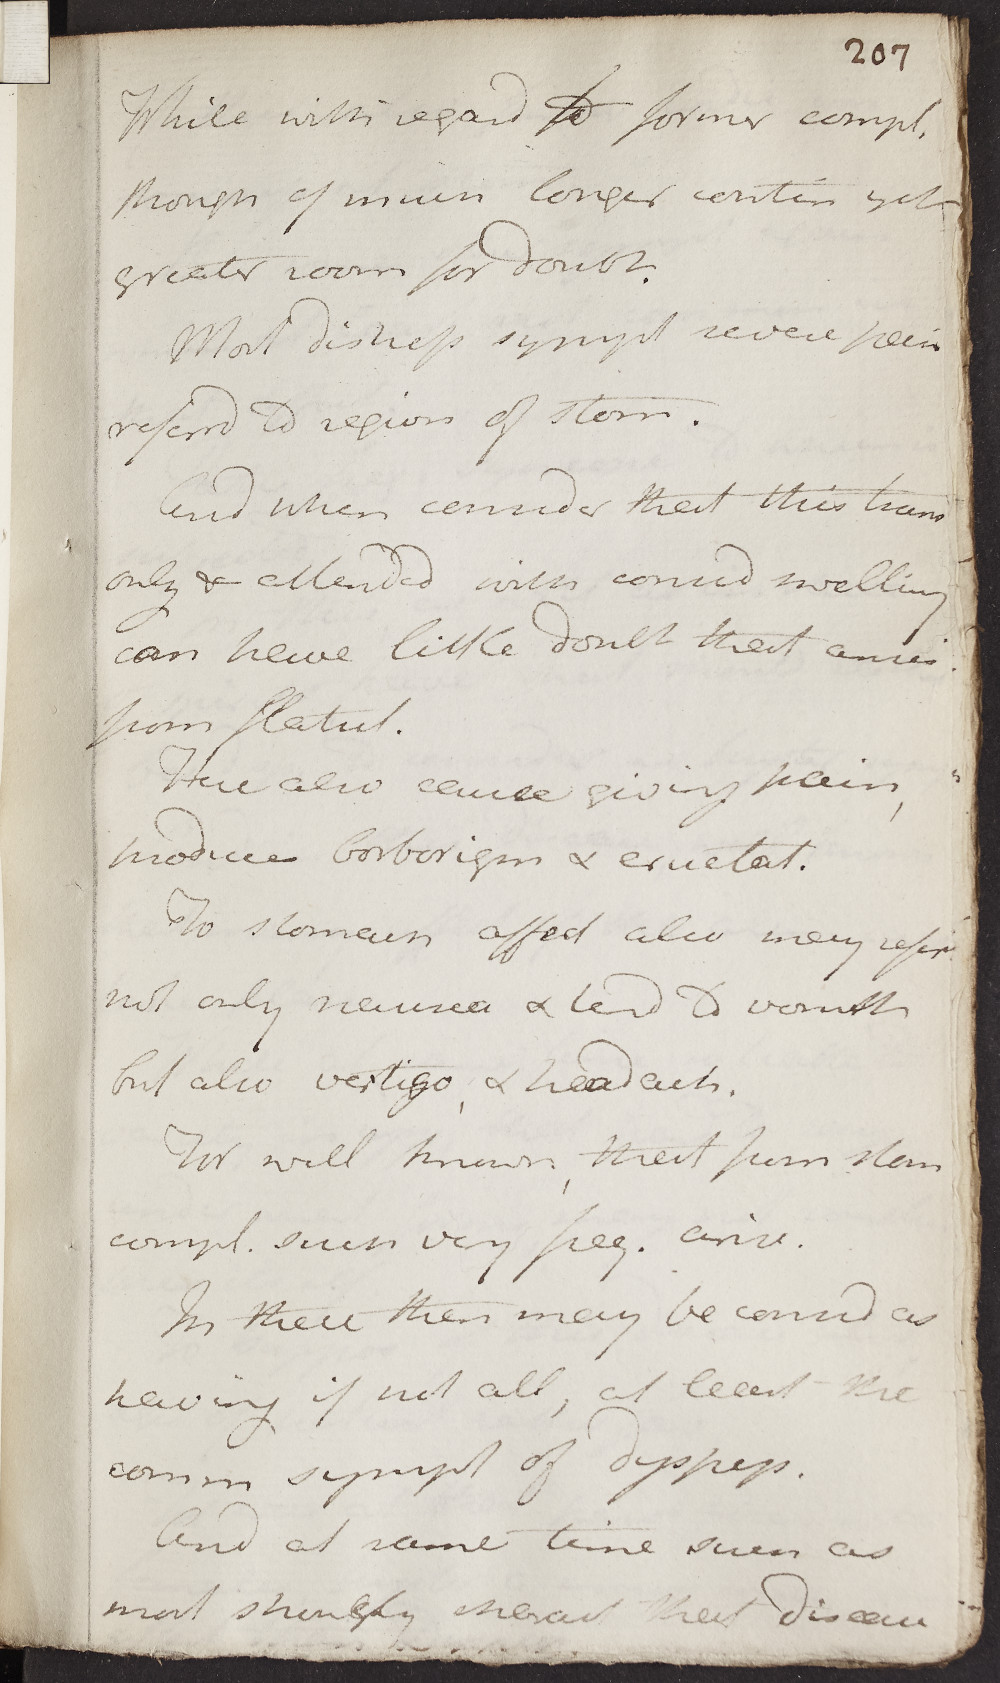 207
While with regard to former compl.
though of much longer contin yet
greater room for doubt.
Most distress sympt severe pain
referd to region of stom.
And when consider that this trans
only & attended with consid swelling
can have little doubt that arises
from flatul.
These also cause giving pain,
produce borborigm & eructat.
To stomach affect also may refer
not only nausea & tend to vomit
but also vertigo, & headach.
For well known, that from stom
compl. such very freq. arise.
In these then may be consid as
having if not all, at least the
comm sympt of dyspeps.
And at same time such as
most strongly charact that disease